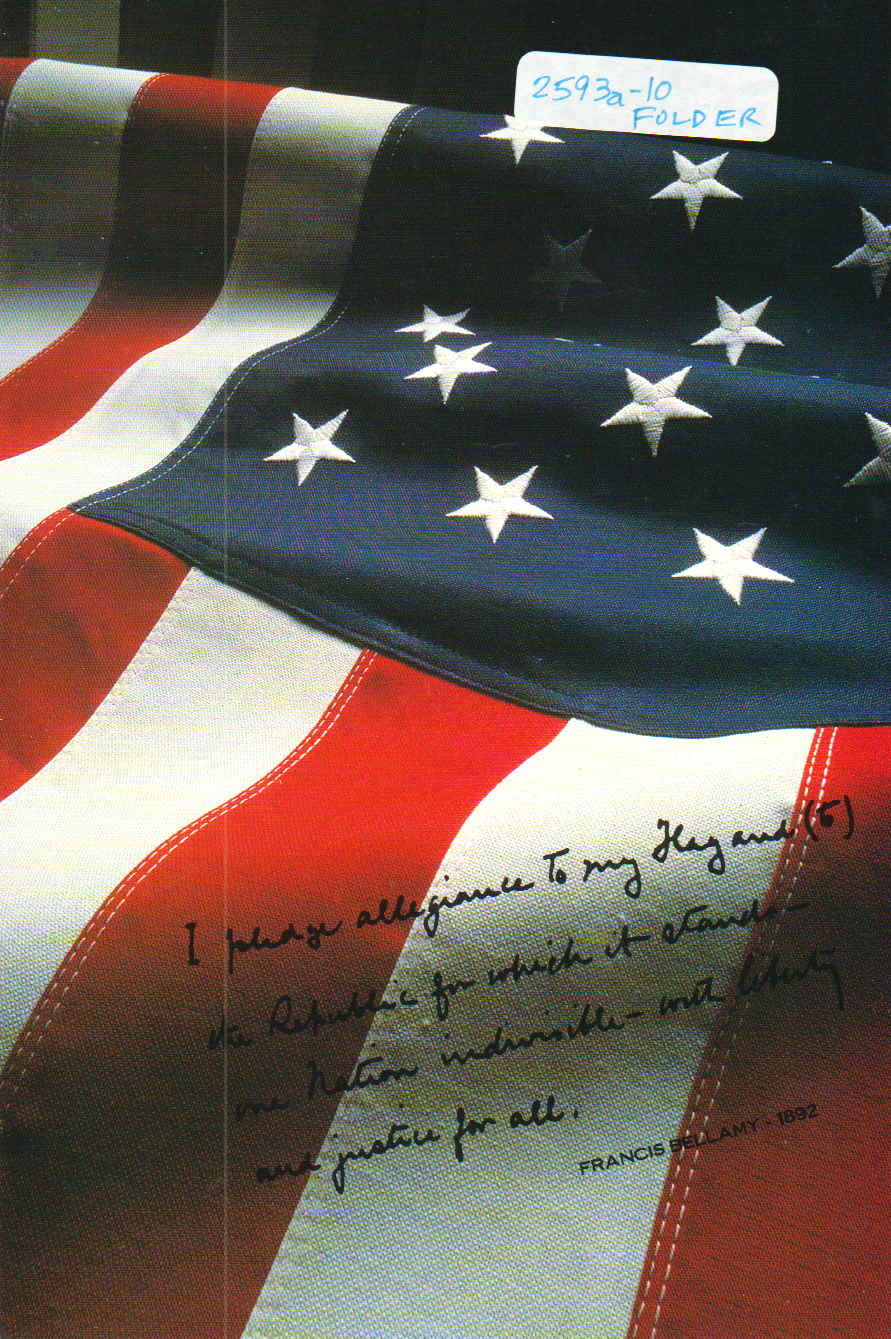 2593a-10
FOLDER
I pledge allegiance to my Flag and (to)
the Republic for which it stands—
one Nation indivisible— with liberty
and justice for all.
FRANCIS BELLAMY - 1892